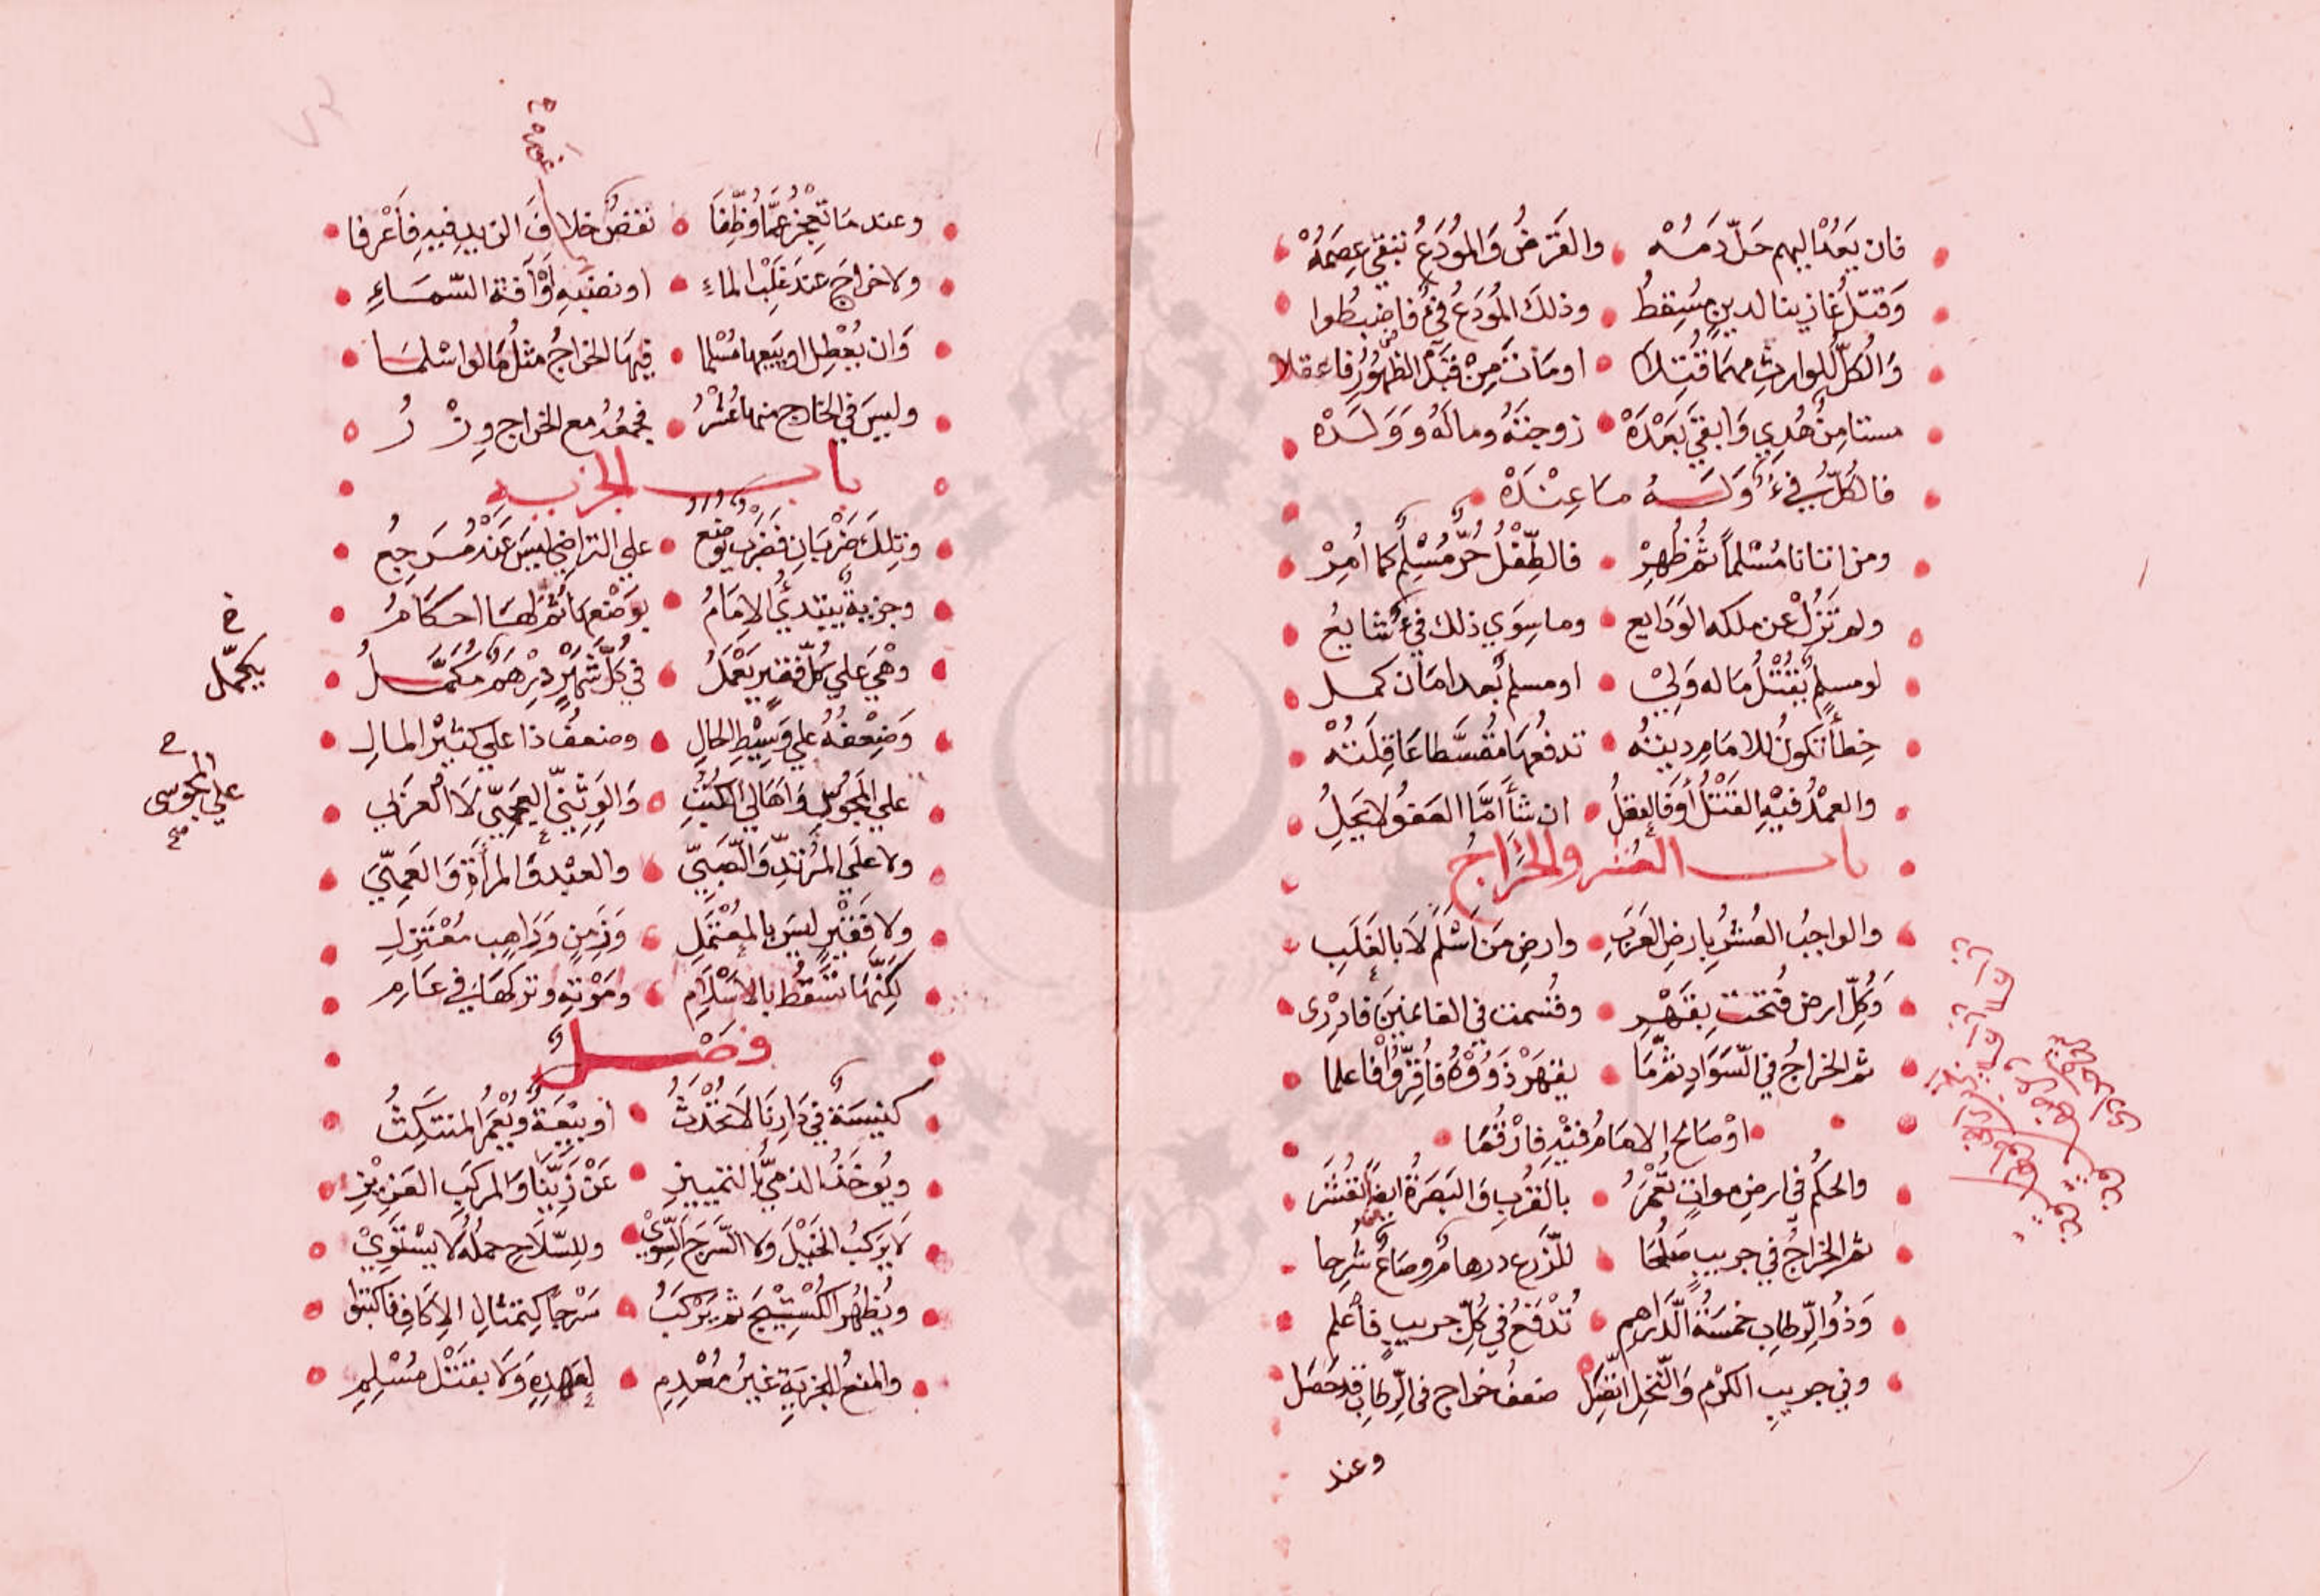 فان يَعُدْ اليهم حَلّ دَمُهْ والقَرضُ وَالمُودَعُ تنبقي عِصَمُهْ
وَقتلُ غازينا لدينٍ مُسْقِطُ وذلكَ المُودَعُ فيءٌ فاضبُطوا
وَالكلُّ للوارثِ مهمَا قُتِلا اومَاتَ مِنْ قَبْلِ الظهُورِ فاعقلا
مستامِنٌ هُدِي وَابقيَ بَعْدَهْ زوجتَهُ ومالَهُ وَوَلَدْه
فالكلُّ فيءٌ وَلَهُ مَا عِنْدَهْ
ومن اتانا مُسْلماً ثمَّ ظُهِرْ فالطِّفلُ حُرٌّ مُسْلِمٌ كما اُمِرْ
ولم تَزُلْ عن ملكه الوَدَايع وما سِوَي ذلك فيءٌ شايعُ
لو مسلمٌ يُقْتَلُ مَا له وَلِيْ او مسلم بُعد امَان كمل
خِطأً تكونُ للامَام ديتُه تدفعُهَا مُقسَّطا عَاقِلَتُهْ
والعمْدُ فيْهِ القتْلُ أوفالعقلُ ان شأَ امَّا العفوُ لا يَحِلُ
باب العُشر والخَرَاجُ
والواجبُ العُشرُ بارضِ العَرَبِ وارضِ مَن اَسْلَمَ لَا بالغَلَبِ
وَكلّ ارض فُتحَتْ بِقَهْرِ وقُسمت في الغانمينَ فادرى
ثم الخراجُ في السَّوَادِ ثمّمَا يقهَرْ ذَوُوْهُ فاُقِرُّوْا فاعلما
اوْ صَالحَ الامَامُ فيْهِ فارْقُمَا
والحكمُ في ارضِ مواتٍ تُعْمَرُ بالقُربِ وَالبَصَرَةُ ايضًا تُعْشَر
ثم الخراجُ في جريبٍ صَلُحَا للزَّرع درهامٌ وصَاعٌ شُرِحا
وَذُو الرِّطابِ خمْسَةُ الدَّرَاهِم تُدْفَعُ في كلّ جريبٍ فاَعْلم
وفي جريبِ الكرْم وَالنَّخلِ اتَّصَلْ ضعفُ خراج في الرِّطابِ قدحَصَل
وعند
وعند مَا تَعْجِزُ عَمَّا وُظِّفَا نقصٌ خلافَ الزيدِ فيهِ فاَعْرفا
ولا خراجَ عندَ غَلْبِ الماءِ او نصبَهِ أوْ آفةِ السَّمَاءِ
وَان يُعْطِل او يَبعها مُسْلما فيهَا الخراجُ مثلُ مَا لو اسْلما
وليسَ في الخارجِ منها عُشْرُ فجمعُهُ مع الخراج وِزْرُ
باب الجزيه
وتلكَ ضَرْبَانِ فضَرب توضع علي التراضي ليسَ عَنْهُ مُرَجِعُ
وجزيةٌ يبتدئُ الامَامُ بوَضْعهَا ثمَّ لهَا احكامُ
وهْيَ علي كُلّ فقيرٍ يَعْملُ في كلّ شَهْرٍ دِرْهَمٌ مُكمَّلُ
وَضِعْفُهُ علي وَسيْطِ الحالِ وضعفُ ذا علي كثيْر المالِ
علي المجُوسِ وَاَهَالي الكُتْبِ وَالوَثَنيّ العجَميّ لَا العرَبي
ولا علَي المرْتدِّ وَالصَّبِيّ والعبْدِ وَالمرأةِ وَالعَمِيّ
ولا فقيْرٍ ليسَ بالمعْتمِلِ وَزَمِنٍ وَرَاهِبٍ مُعْتَزِلِ
لكنَّهَا تسْقُطُ بالاسْلَامِ ومَوْتهِ وتركهَا في عَامِ
فصْلٌ
كنيسَةٌ في دَارِنَا لَا تحْدَثُ اوبِيْعَةٌ ويُعْمَرُ المنتكِثُ
ويُوخَذُ الذميُّ بالتمييزِ عَنْ زِيِّنَا وَالمركبِ العَزِيْزِ
لا يَركبُ الخَيْلَ وَلا السَّرجَ السَّوِيْ وللسِّلَاحِ حملُهُ لا يسْتَوِيْ
ويُظهرُ الكُسْتِيْجَ ثم يَرْكَبُ سَرْجاً كتمثالِ الاِكافِ فاكتبوا
والمنعُ للجِزيَةِ غيرُ مُعْدِمِ لعَهدِهِ وَلَا بقتْل مُسْلِمِ
يكمّل
علي المجوسى